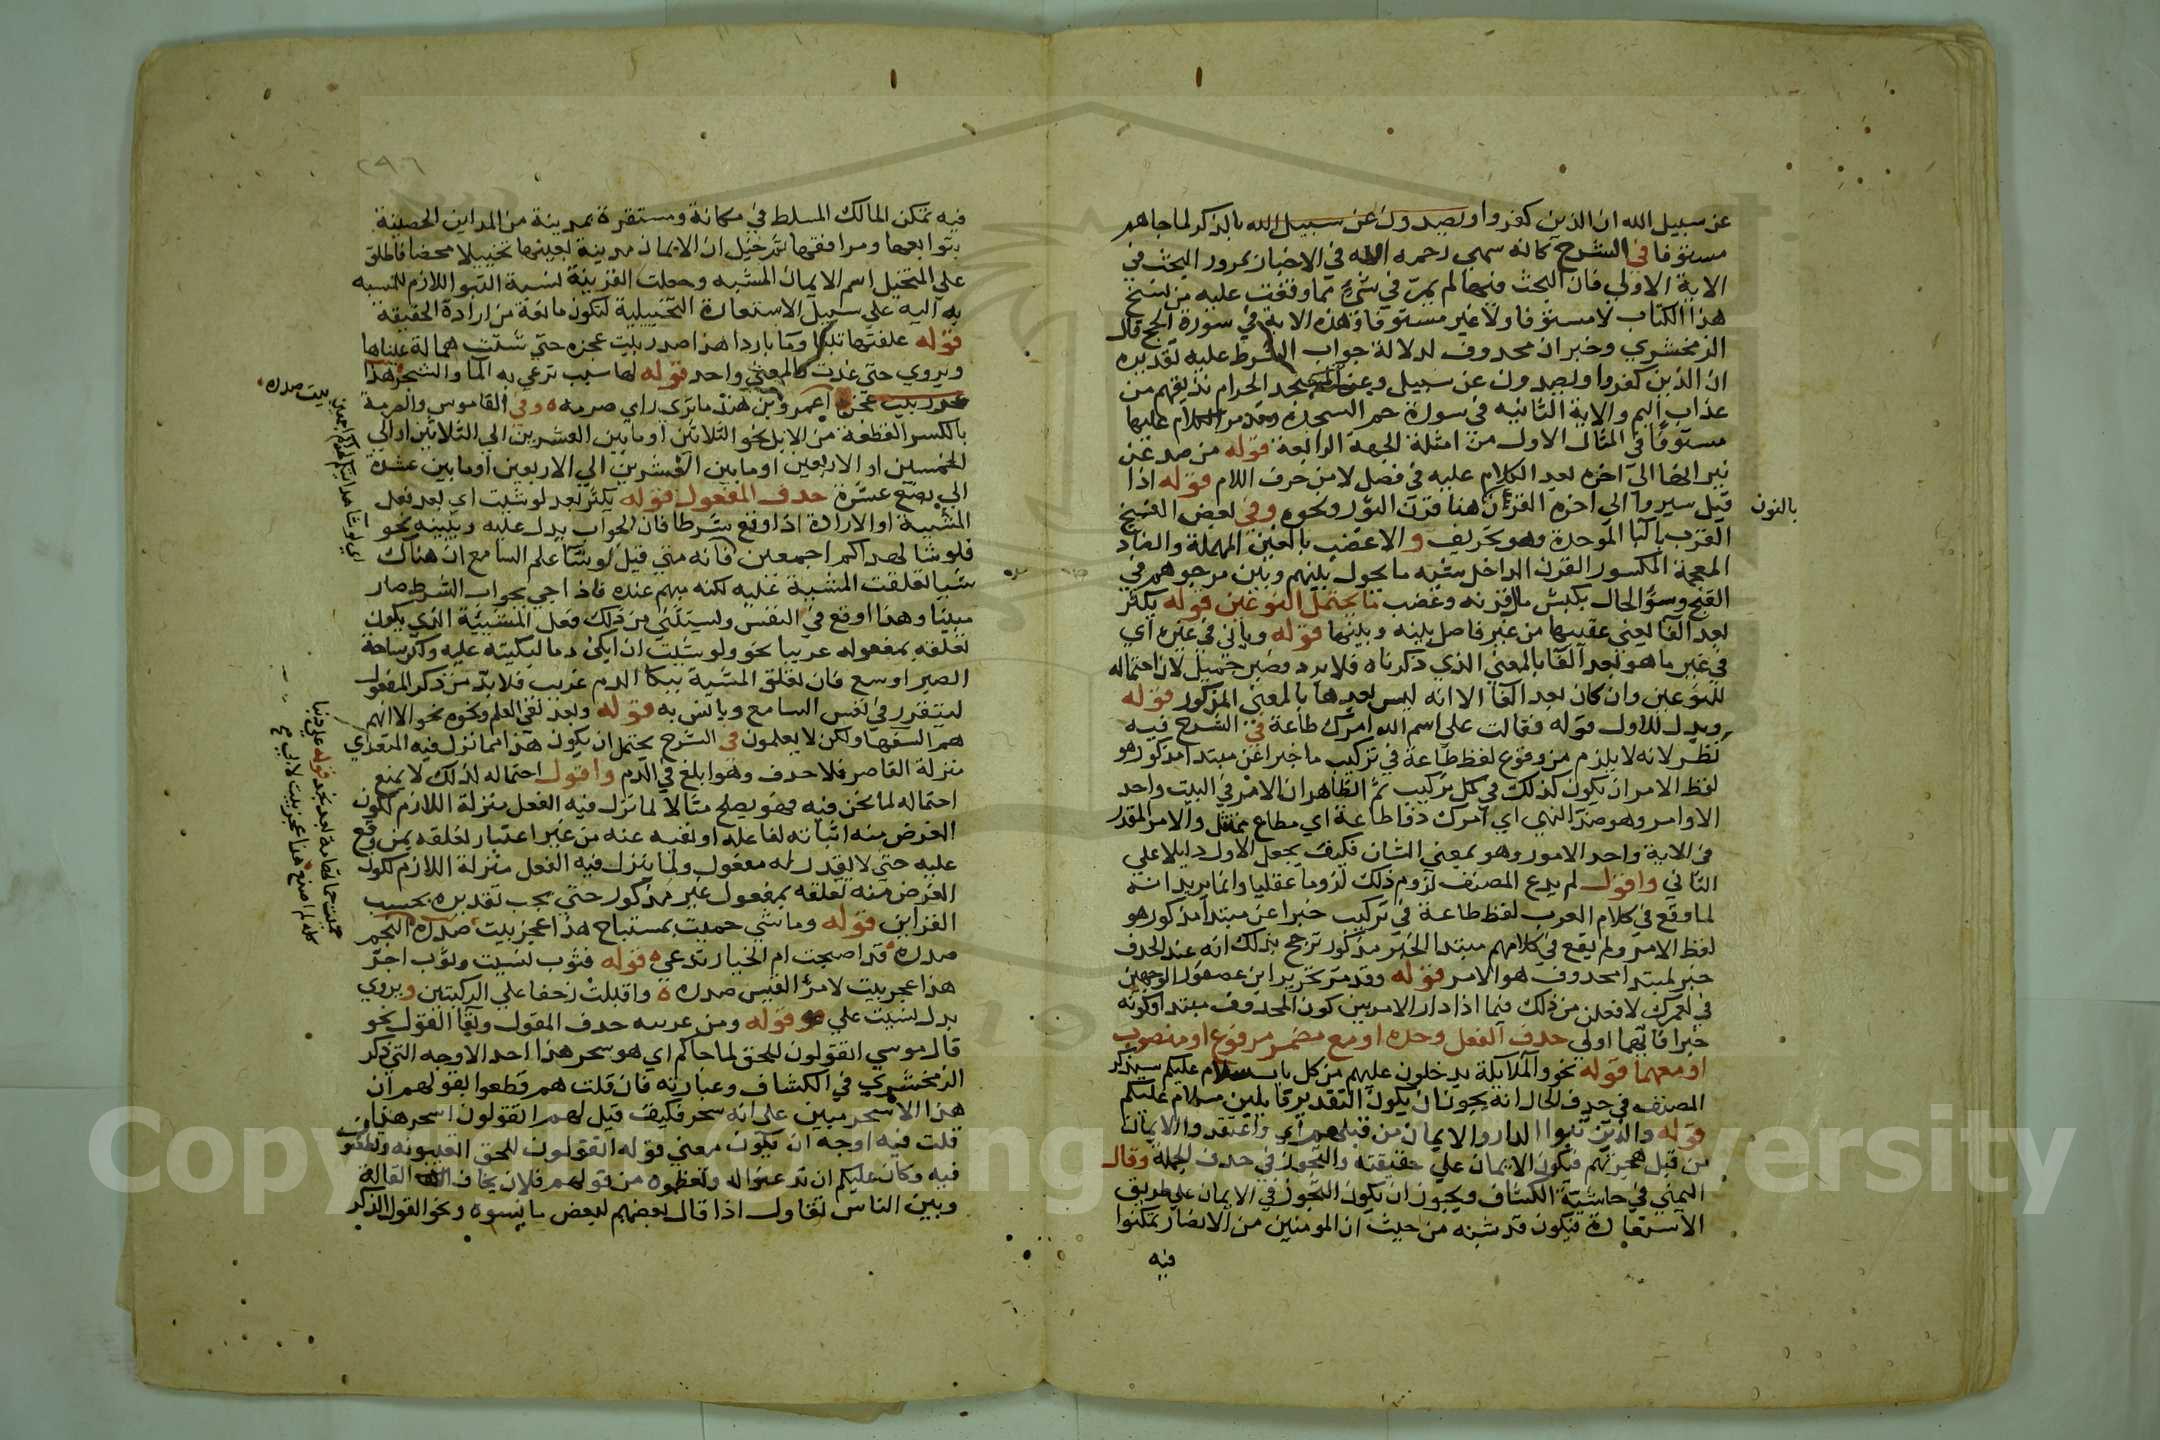 عن سبيل الله ان الذين كفروا ويصدون عن سبيل الله بالذكر لما جاهم
مستوفا في الشرح كانه سهى رحمه الله في الاخبار بمرور البحث في
الاية الاولى فان البحث فيها لم يمر في شيء مما وقفت عليه من نسخ
هذا الكتاب لا مستوفا ولا غير مستوفا وهذه الاية في سورة الحج قال
الزمخشري وخبر ان محذوف لدلالة جواب الشرط عليه تقديره
ان الذين كفروا ويصدون عن سبيلي وعن المسجد الحرام نذيقهم من
عذاب اليم والاية الثانيه في سورة حم السجدة ومر الكلام عليها
مستوفا في المثال الاول من امثلة الجهة الرابعة قوله من صد عن
نيرانها الى اخره بعد الكلام عليه في فصل لا من حرف اللام قوله اذا
قيل سيروا الى اخره القرن هنا قرن الثور ونحوه وفي بعض النسخ
بالنون
القرب بالبا الموحدة وهو تحريف والاعضب بالعين المهملة والضاد
المعجمة المكسور القرن الداخل شبه ما يحول بينهم وبين مرجوهم في
القبح وسؤ الحال بكبش مال قرنه وعضب ما يحتمل النوعين قوله يكثر
بعد الفا يعني عقيبها من غير فاصل بينه وبينها قوله وياتي في غيره اي
في غير ما هو بعد الفا بالمعنى الذي ذكرناه فلا يرد وصبر جميل لان احتماله
للنوعين وان كان بعد الفا الا انه ليس بعدها بالمعنى المذكور قوله
ويدل للاول قوله فقالت على اسم الله امرك طاعة في الشرح فيه
نظر لانه لا يلزم من وقوع لفظ طاعة في تركيب ما خبرا عن مبتدا مذكور هو
لفظ الامر ان يكون كذلك في كل تركيب ثم الظاهر ان الامر في البيت واحد
الاوامر وهو ضد النهي اي امرك ذو طاعة اي مطاع ممتثل والامر المقدر
في الاية واحد الامور وهو بمعنى الشان فكيف يجعل الاول دليلا على
الثاني واقول لم يدع المصنف لزوم ذلك لزوما عقليا وانما يريد انه
لما وقع في كلام العرب لفظ طاعة في تركيب خبرا عن مبتدا مذكور هو
لفظ الامر ولم يقع في كلامهم مبتدا لخبر مذكور ترجح بذلك انه عند الحذف
خبر لمبتدا محذوف هو الامر قوله وقد مر تحرير ابن عصفور الوجهين
في لعمرك لافعلن من ذلك فيما اذا دار الامر بين كون المحذوف مبتدا وكونه
خبرا فايهما اولى حذف الفعل وحده او مع مضمر مرفوع او منصوب
او معهما قوله نحو والملائكة يدخلون عليهم من كل باب سلام عليكم سيذكر
المصنف في حذف الحال انه يجوز ان يكون التقدير قايلين سلام عليكم
قوله والذين تبوا الدار والايمان من قبلهم اي واعتقدوا الايمان
من قبل هجرتهم فيكون الايمان على حقيقته والتجوز في حذف الجملة وقال
اليمني في حاشية الكشاف ويجوز ان يكون التجوز في الايمان على طريق
الاستعارة فيكون قد شبه من حيث ان المومنين من الانصار تمكنوا
فيه
٢٩٦
فيه تمكن المالك المسلط في مكانة ومستقرة بمدينة من المداين الحصينة
بتوابعها ومرافقها ثم خيل ان الايمان مدينة بعينها تخييلا محضا فاطلق
على المتخيل اسم الايمان المشبه وجعلت القرينة نسبة التبو اللازم للمشبه
به اليه على سبيل الاستعارة التخييلية لتكون مانعة من ارادة الحقيقة
قوله علفتها تبنا وما باردا هذا صدر بيت عجزه حتى شتت همالة عيناها
ويروى حتى غدت والمعنى واحد قوله لها سبب ترعى به الما والشجر هذا
عجز بيت صدره
اعمرو بن هند ما ترى راي صرمه وفي القاموس والصرمة
بالكسر القطعة من الابل نحو الثلاثين او ما بين العشرين الى الثلاثين او الى
الخمسين او الاربعين او ما بين العشرين الى الاربعين او ما بين عشرة
الى بضع عشرة حذف المفعول قوله يكثر بعد لو شيت اي بعد فعل
المشيية او الارادة اذا وقع شرطا فان الجواب يدل عليه ويبينه نحو
فلو شا لهداكم اجمعين فانه متى قيل لو شا علم السامع ان هناك
شيا تعلقت المشية عليه لكنه مبهم عنده فاذا جي بجواب الشرط صار
مبينا وهذا اوقع في النفس ويستثنى من ذلك فعل المشيية الذي يكون
تعلقه بمفعوله غريبا نحو ولو شيت ان ابكي دما لبكيته عليه ولكن ساحة
الصبر اوسع فان تعلق المشية ببكا الدم غريب فلا بد من ذكر المفعول
ليتقرر في نفس السامع ويانس به قوله وبعد نفي العلم ونحوه نحو الا انهم
هم السفها ولكن لا يعلمون في الشرح يحتمل ان يكون هذا مما نزل فيه المتعدي
منزلة القاصر فلا حذف وهو ابلغ في الذم واقول احتماله لذلك لا يمنع
احتماله لما نحن فيه فهو يصلح مثالا لما نزل فيه الفعل منزلة اللازم لكون
الغرض منه اثباته لفاعله او نفيه عنه من غير اعتبار تعلقه بمن وقع
عليه حتى لا يقدر له مفعول ولما ينزل فيه الفعل منزلة اللازم لكون
الغرض منه تعلقه بمفعول غير مذكور حتى يجب تقديره بحسب
القراين قوله وما شي حميت بمستباح هذا عجز بيت صدره
صدره قد اصبحت ام الخيار تدعي قوله فثوب نسيت وثوب اجر
هذا عجز بيت لامرئ القيس صدره واقبلت زحفا على الركبتين ويروى
بدل نسيت على قوله ومن غريبه حذف المقول وبقا القول نحو
قال موسى اتقولون للحق لما جاكم اي هو سحر هذا احد الاوجه التي ذكر
الزمخشري في الكشاف وعبارته فان قلت هم قطعوا بقولهم ان
هذا لاسحر مبين على انه سحر فكيف قيل لهم اتقولون اسحر هذا
قلت فيه اوجه ان يكون معنى قوله اتقولون للحق اتعيبونه وتطعنون
فيه وكان عليكم ان تذعنوا له وتعظموه من قولهم فلان يخاف القالة
وبين الناس تقاول اذا قال بعضهم لبعض ما يسوه ونحو القول الذكر
حميت حمى تهامة بعد نجد قوله على ذنبا
كله لم اصنع هذا عجز بيت لابي